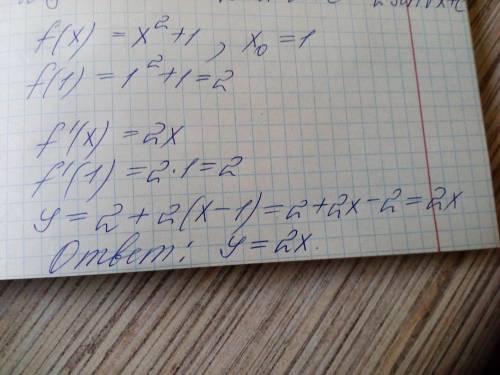 f(x) = x²+1, x₀ = 1
f(1) = 1²+1 = 2
f'(x) = 2x
f'(1) = 2·1 = 2
y = 2 + 2(x-1) = 2+2x-2 = 2x
Ответ: y = 2x.